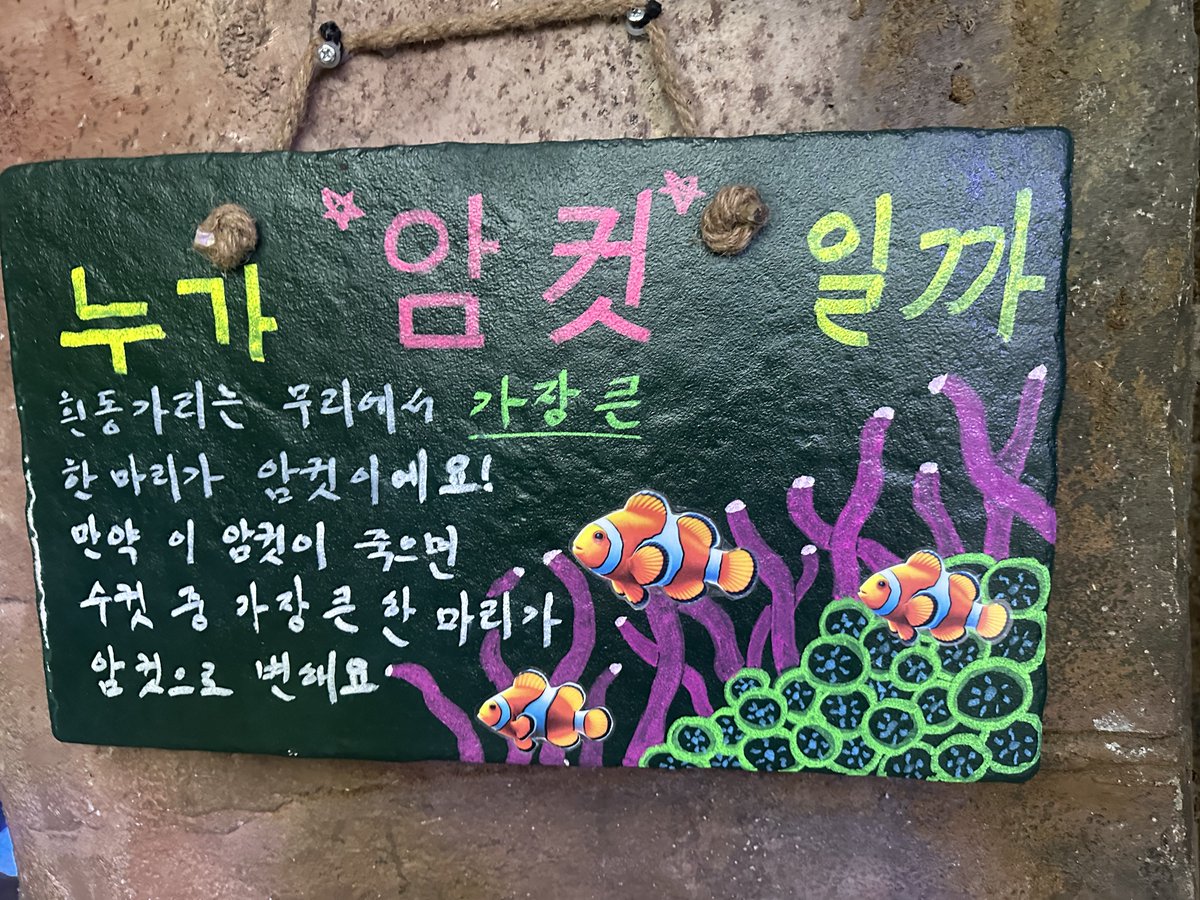 누가 "암컷" 일까
흰동가리는 무리에서 가장 큰
한 마리가 암컷이에요!
만약 이 암컷이 죽으면
수컷 중 가장 큰 한 마리가
암컷으로 변해요.